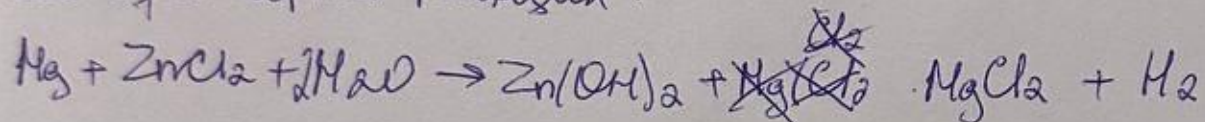 Mg + ZnCl2 + 2H2O → Zn(OH)2 + MgCl2 + H2